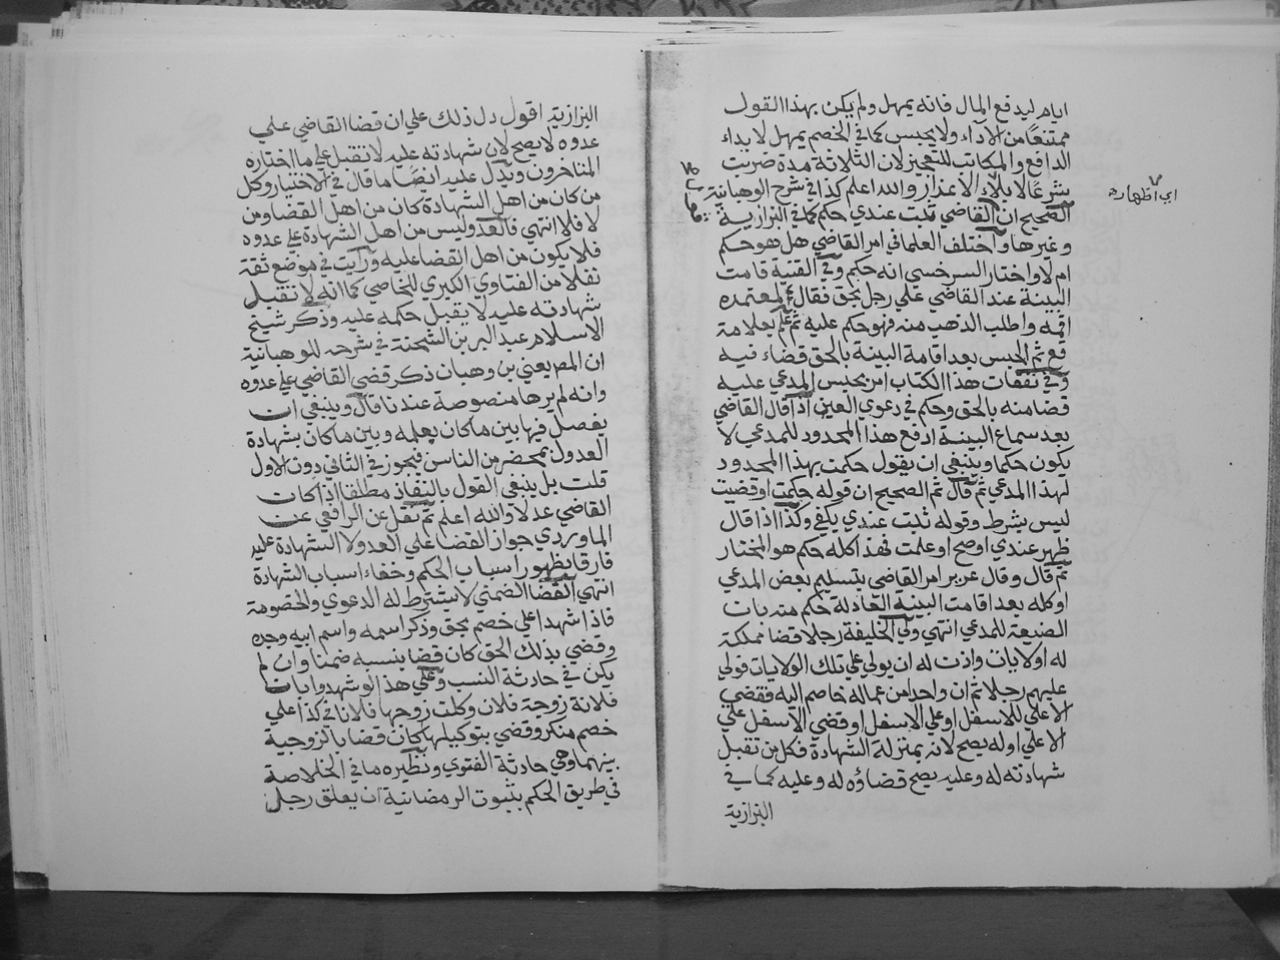 ايام ليدفع المال فانه يمهل ولم يكن بهذا القول
ممتنعا من الاداء ولا يحبس كما في الخصم يمهل لابداء
الدافع والمكاتب للتعجيز لان الثلاثة مدة ضربت
شرعا لابلاء الاعذار والله اعلم كذا في شرح الوهبانية
اي اظهاره
الصحيح ان القاضي ثبت عندي حكم كما في البزازية
وغيرها واختلف العلما في امر القاضي هل هو حكم
ام لا واختار السرخسي انه حكم وفي القنية قامت
البينة عند القاضي علي رجل بحق فقال لمعتمده
اقمه واطلب الذهب منه فهو حكم عليه ثم علم بعلامة
قع ثم الحبس بعد اقامة البينة بالحق قضاء فيه
وفي نفقات هذا الكتاب امر بحبس المدعي عليه
قضا منه بالحق وحكم في دعوي العين اذا قال القاضي
بعد سماع البينة ادفع هذا المحدود للمدعي لا
يكون حكما وينبغي ان يقول حكمت بهذا المحدود
لهذا المدعي ثم قال ثم الصحيح ان قوله حكمت او قضيت
ليس بشرط وقوله ثبت عندي يكفي وكذا اذا قال
ظهر عندي او صح او علمت فهذا كله حكم هو المختار
ثم قال وقال امر القاضي بتسليم بعض المدعي
او كله بعد اقامت البينة العادلة حكم منه بان
الضيعة للمدعي انتهي ولي الخليفة رجلا قضا مملكة
له او لايات واذن له ان يولي علي تلك الولايات فولي
عليهم رجلا ثم ان واحدا من عماله خاصم اليه فقضي
الاعلي للاسفل او علي الاسفل او قضي الاسفل علي
الاعلي او له يصح لانه بمنزلة الشهادة فكل من تقبل
شهادته له وعليه يصح قضاؤه له وعليه كما في
البزازية
البزازية اقول دل ذلك علي ان قضا القاضي علي
عدوه لا يصح لان شهادته عليه لا تقبل علي ما اختاره
المتاخرون ويدل عليه ايضا ما قال في الاختيار وكل
من كان من اهل الشهادة كان من اهل القضا ومن
لا فلا انتهي فالعدو ليس من اهل الشهادة علي عدوه
فلا يكون من اهل القضا عليه ورايت في موضع ثقة
نقلا من الفتاوي الكبري للخاصي كما انه لا تقبل
شهادته عليه لا يقبل حكمه عليه وذكر شيخ
الاسلام عبد البر بن الشحنة في شرحه للوهبانية
ان المص يعني بن وهبان ذكر قضي القاضي علي عدوه
وانه لم يرها منصوصة عندنا قال وينبغي ان
يفصل فيها بين ما كان بعلمه وبين ما كان بشهادة
العدول بمحضر من الناس فيجوز في الثاني دون الاول
قلت بل ينبغي القول بالنفاذ مطلقا اذا كان
القاضي عدلا والله اعلم ثم نقل عن الرافعي عن
الماوردي جواز القضا علي العدو لا الشهادة عليه
فارقا بظهور اسباب الحكم وخفاء اسباب الشهادة
انتهي القضا الضمني لا تشترط له الدعوي والخصومة
فاذا شهدا علي خصم بحق وذكر اسمه واسم ابيه وجده
وقضي بذلك الحق كان قضا بنسبه ضمنا وان لم
يكن في حادثة النسب وعلي هذا لو شهدوا بان
فلانة زوجة فلان وكلت زوجها فلانا في كذا علي
خصم منكر وقضي بتوكيلها كان قضا بالزوجية
بينهما وهي حادثة الفتوي ونظيره ما في الخلاصة
في طريق الحكم بثبوت الرمضانية ان يعلق رجل